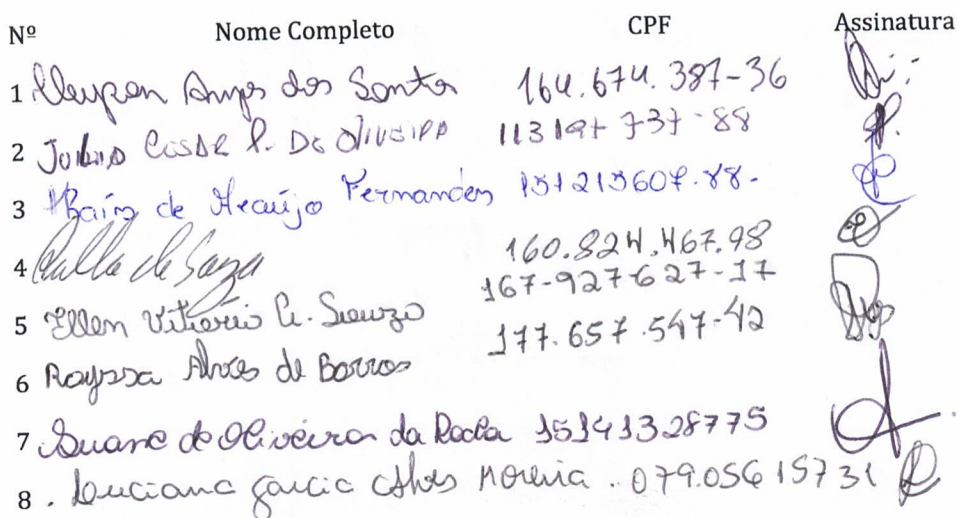 Nº Nome Completo CPF Assinatura
1 dos Santos 164.674.387-36
2 Julio Cesar P. De Oliveira 113197737-88
3 Thaís de Araújo Fernandes 151213607.88-
4 de Souza 160.824.467.98
5 Ellen Vitória C. Souza 167-927627-17
6 Rayssa Alves de Barros 177.657.547-42
7 Suane de Oliveira da Rocha 15141328775
8 . Luciana Garcia Alves Moreira . 079.056 157 31